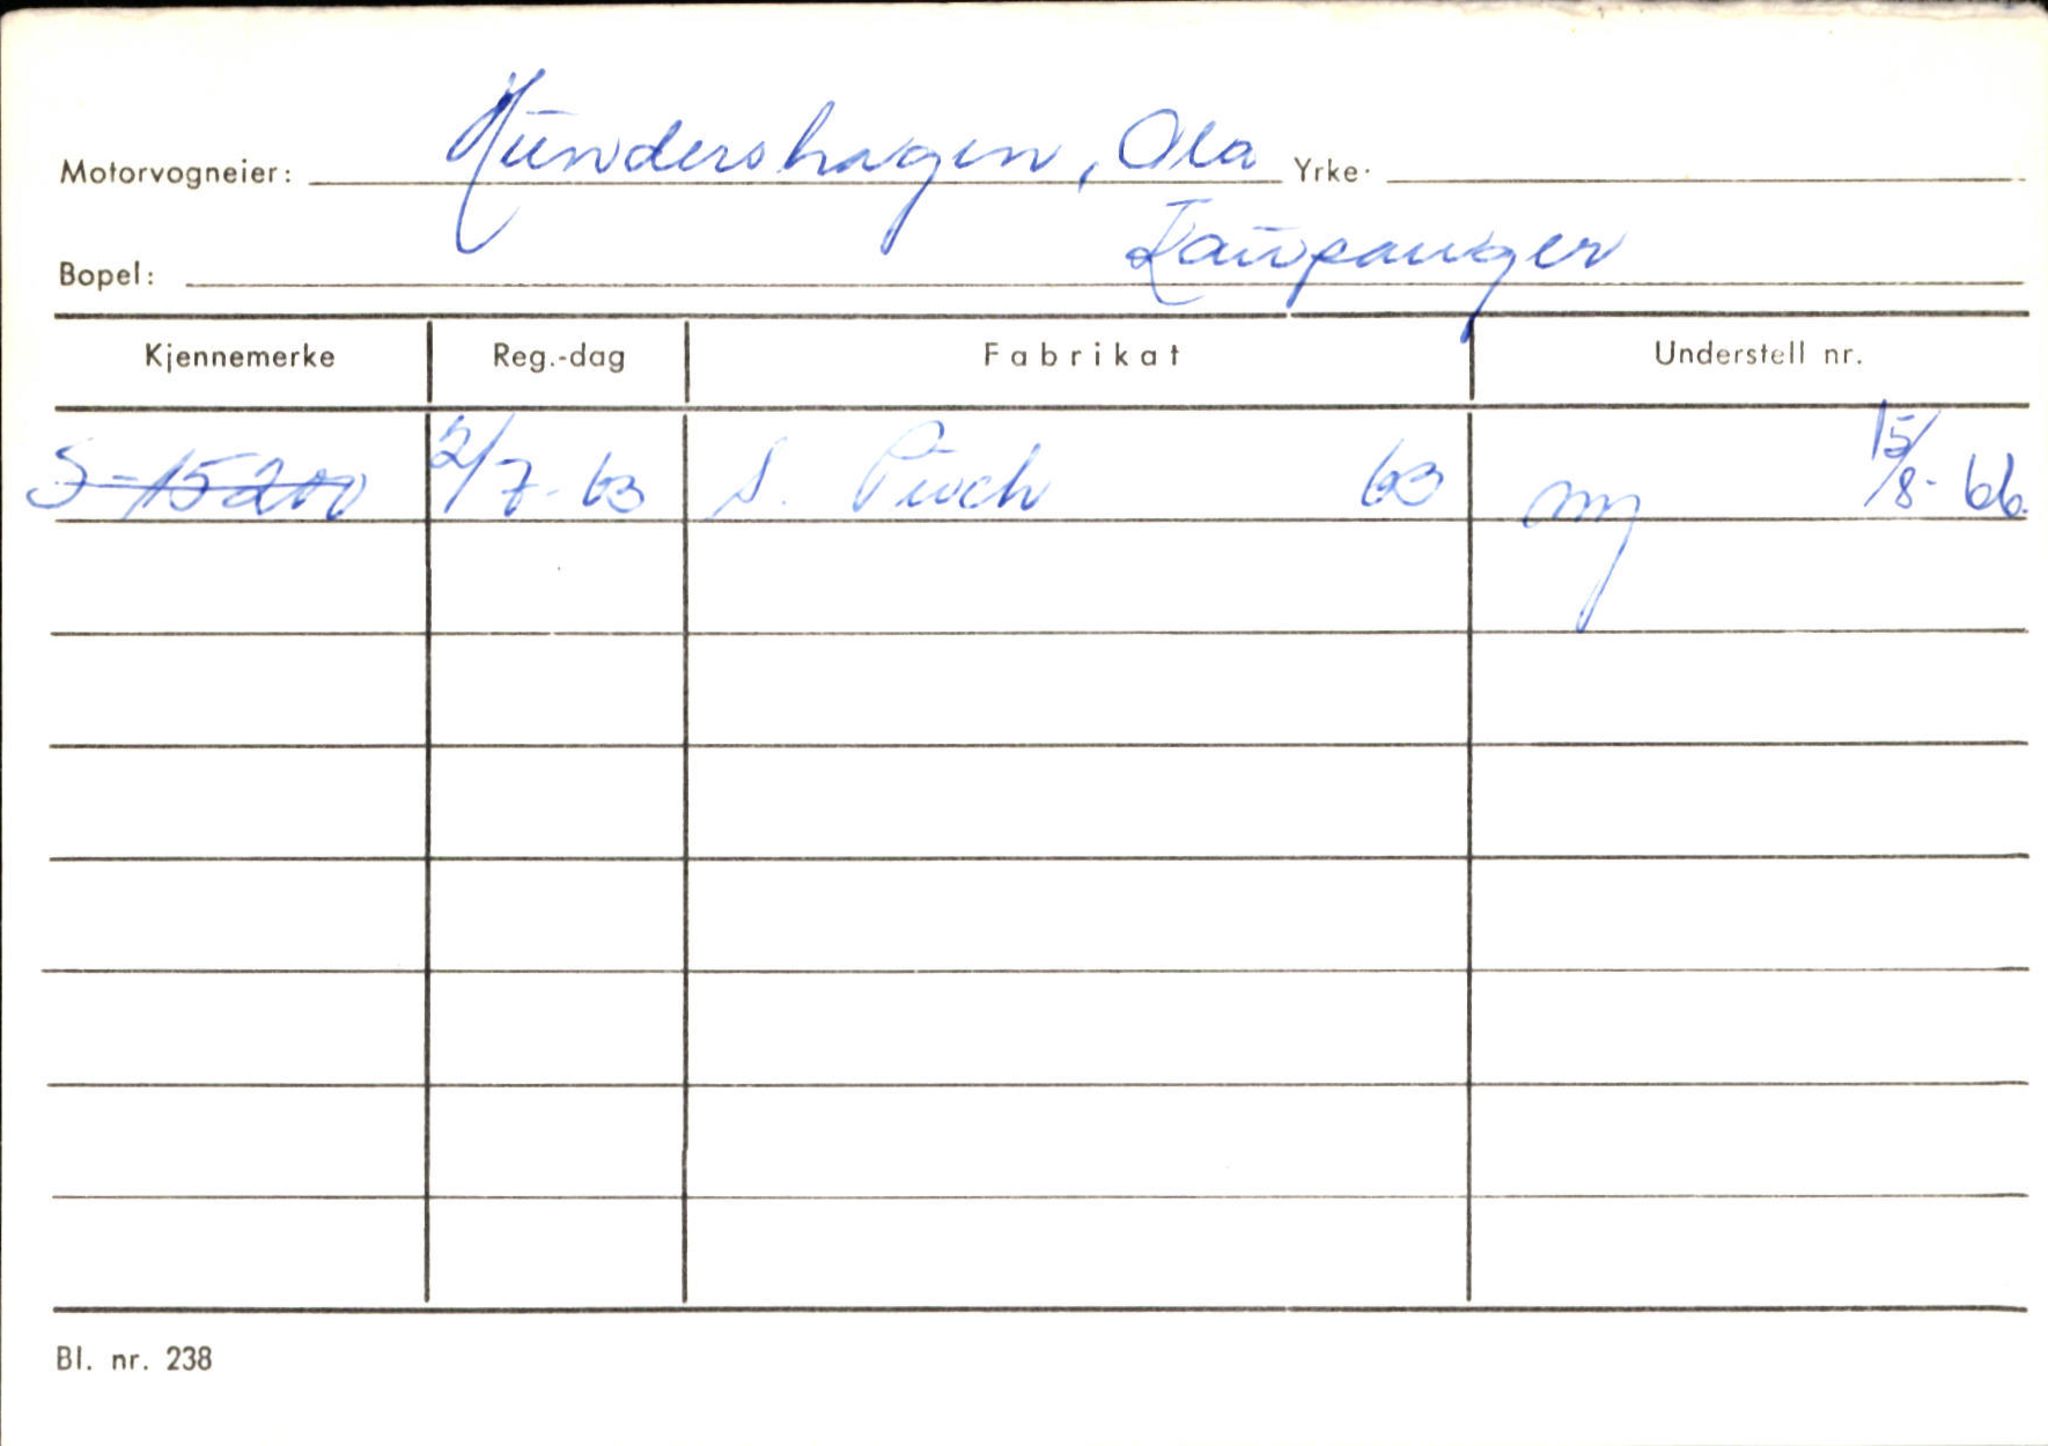 Motorvogneier: Hundershagen, Ola Yrke.
Bopel: Kaupanger
Kjennemerke Reg.-dag Fabrikat Understell nr.
S-15200 2/7-63 S. Puch 63 ny 15/8-66.
Bl. nr. 238